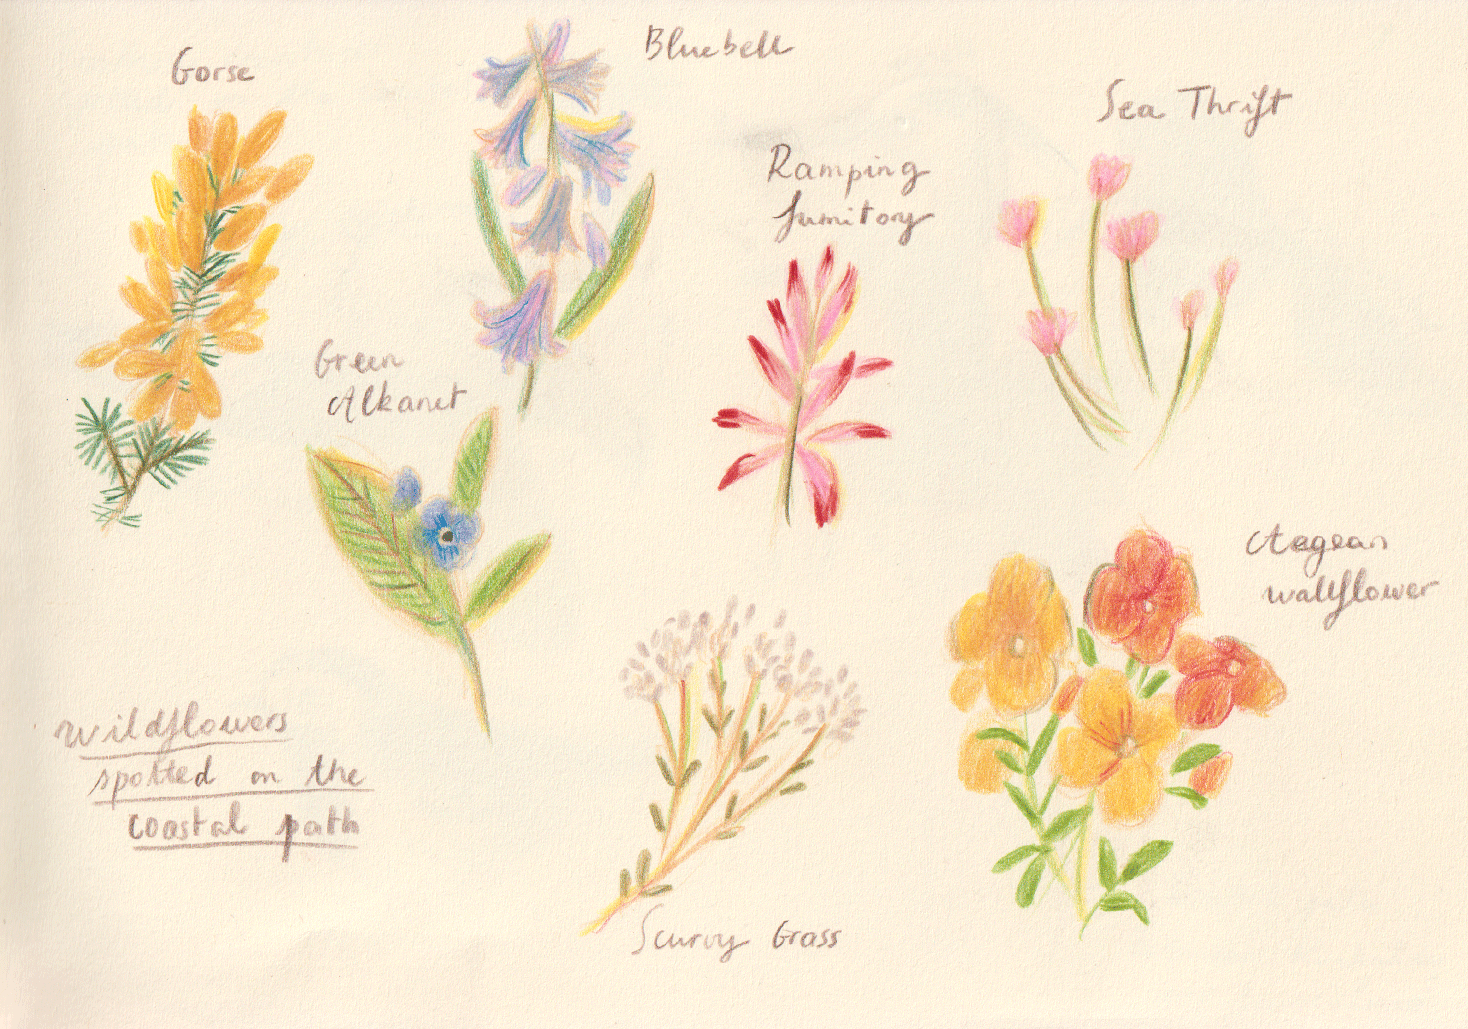 Gorse
Bluebell
Sea Thrift
Ramping
fumitory
Green
Alkanet
Aegean
wallflower
Wildflowers
spotted on the
coastal path
Scurvy Grass